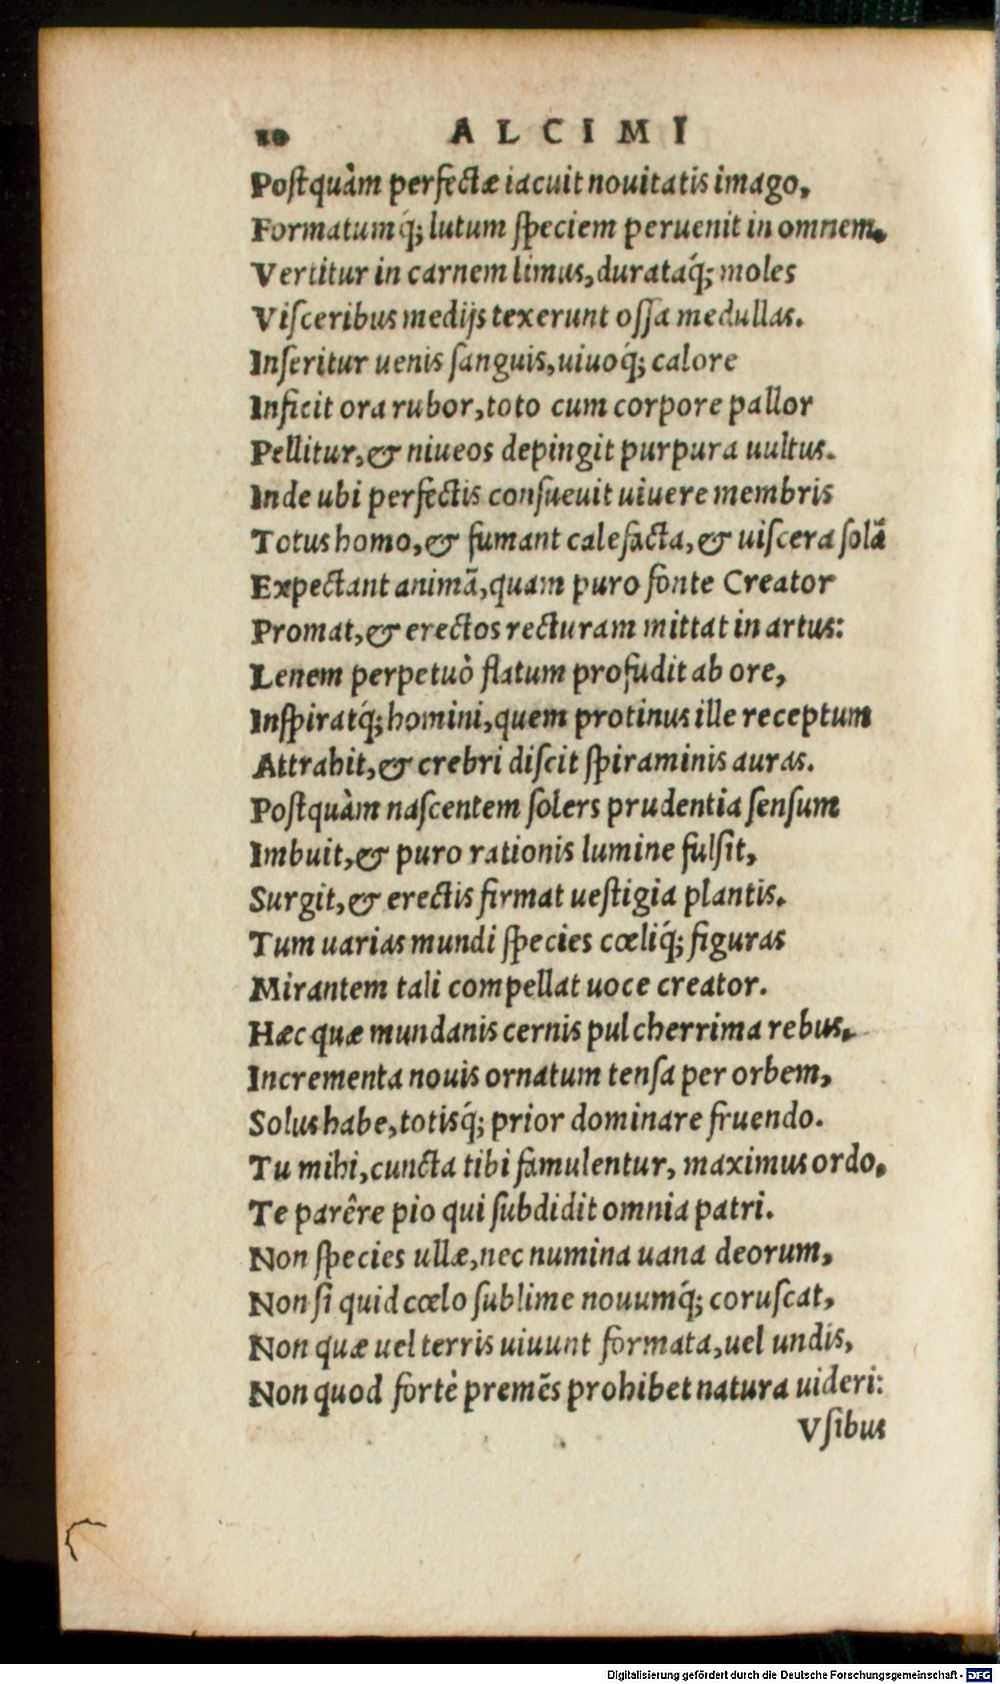 10 ALCIMI
Poſtquàm perfectæ iacuit nouitatis imago,
Formatumq́; lutum ſpeciem peruenit in omnem.
Vertitur in carnem limus, durataq́; moles
Viſceribus medijs texerunt oſſa medullas.
Inſeritur uenis ſanguis, uiuoq́; calore
Inficit ora rubor, toto cum corpore pallor
Pellitur, & niueos depingit purpura uultus.
Inde ubi perfectis conſueuit uiuere membris
Totus homo, & fumant calefacta, & uiſcera ſolã
Expectant animã, quam puro fonte Creator
Promat, & erectos recturam mittat in artus:
Lenem perpetuò flatum profudit ab ore,
Inſpiratq́; homini, quem protinus ille receptum
Attrahit, & crebri diſcit ſpiraminis auras.
Poſtquàm naſcentem ſolers prudentia ſenſum
Imbuit, & puro rationis lumine fulſit,
Surgit, & erectis firmat ueſtigia plantis.
Tum uarias mundi ſpecies cœliq́; figuras
Mirantem tali compellat uoce creator.
Hæc quæ mundanis cernis pulcherrima rebus,
Incrementa nouis ornatum tenſa per orbem,
Solus habe, totisq́; prior dominare fruendo.
Tu mihi, cuncta tibi famulentur, maximus ordo,
Te parêre pio qui ſubdidit omnia patri.
Non ſpecies ullæ, nec numina uana deorum,
Non ſi quid cœlo ſublime nouumq́; coruſcat,
Non quæ uel terris uiuunt formata, uel undis,
Non quod fortè premẽs prohibet natura uideri:
Vſibus
Digitalisierung gefördert durch die Deutsche Forschungsgemeinschaft - DFG